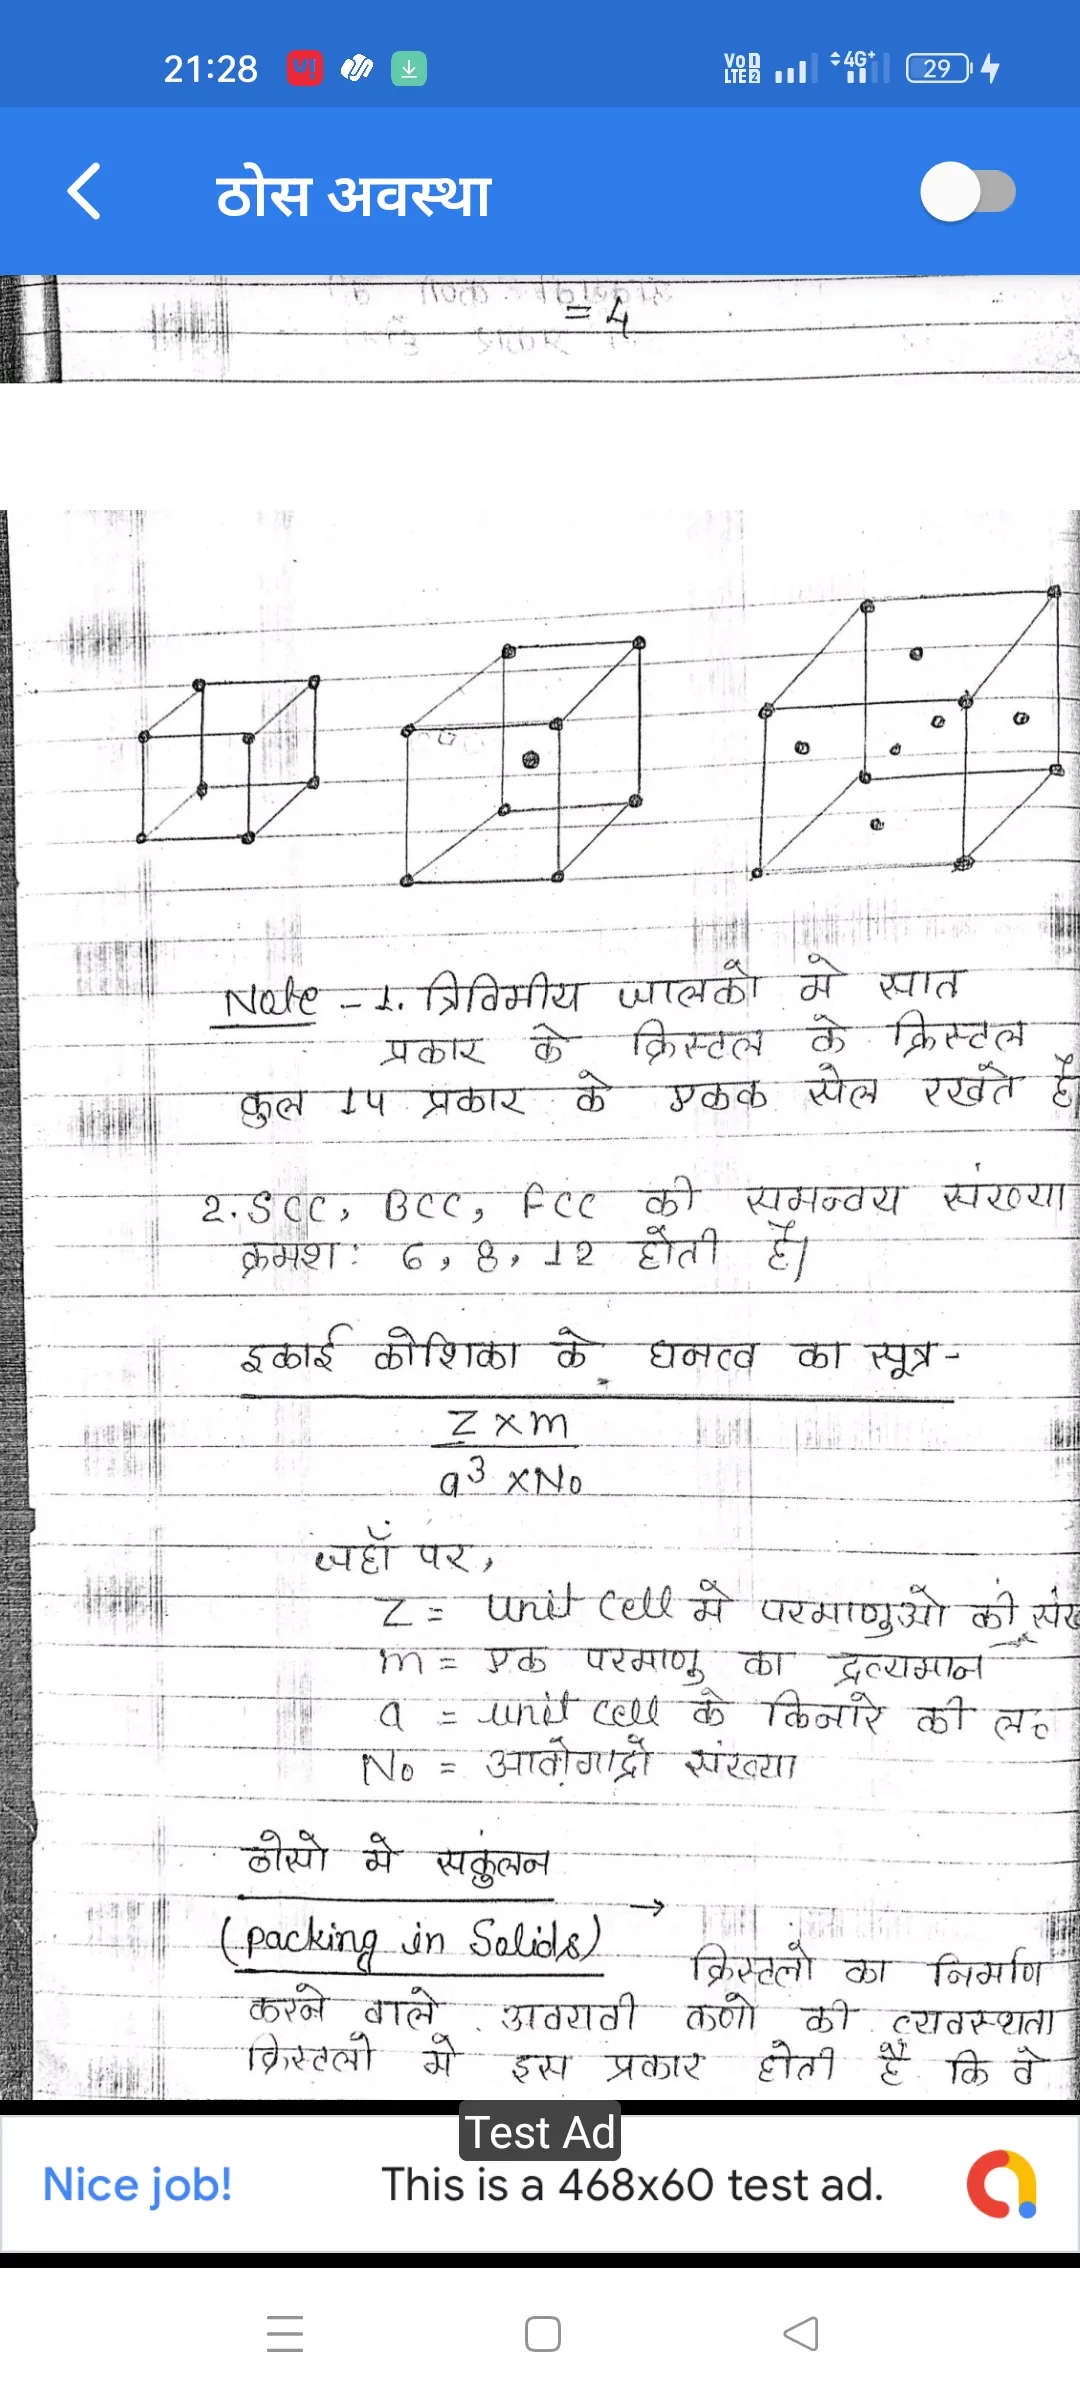 21:28
VoD LTE 2 4G+ 29
ठोस अवस्था
= 4
Note - 1. त्रिविमीय जालको मे सात
प्रकार के क्रिस्टल के क्रिस्टल
कुल 14 प्रकार के एकक सेल रखते है|
2. SCC, BCC, FCC की समन्वय संख्या
क्रमश: 6, 8, 12 होती है|
इकाई कोशिका के घनत्व का सूत्र-
Z × m
a³ × No
जहाँ पर,
Z = unit cell मे परमाणुओ की संख
m = एक परमाणु का द्रव्यमान
a = unit cell के किनारे की ल०
No = आवोगाद्रो संख्या
ठोसो मे सकुंलन
(packing in Solids) →
क्रिस्टलो का निर्माण
करने वाले अवयवी कणो की व्यवस्थता
क्रिस्टलो मे इस प्रकार होती है कि वे
Test Ad
Nice job! This is a 468x60 test ad.